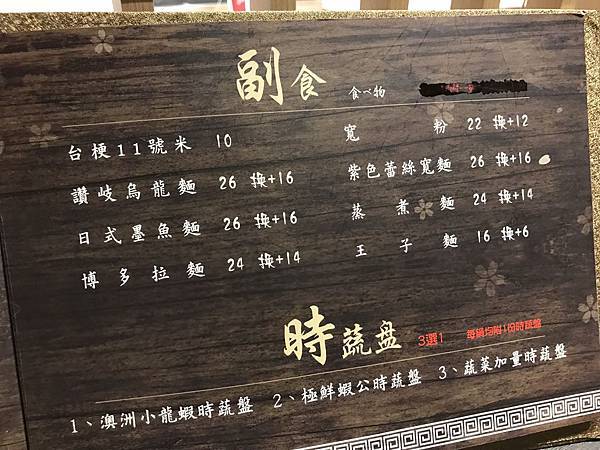 副食 食べ物
台梗11號米 10
讚岐烏龍麵 26 換+16
日式墨魚麵 26 換+16
博多拉麵 24 換+14
寬粉 22 換+12
紫色蕾絲寬麵 26 換+16
蒸煮麵 24 換+14
王子麵 16 換+6
時蔬盘 3選1 每鍋均附1份時蔬盤
1、澳洲小龍蝦時蔬盤 2、極鮮蝦公時蔬盤 3、蔬菜加量時蔬盤